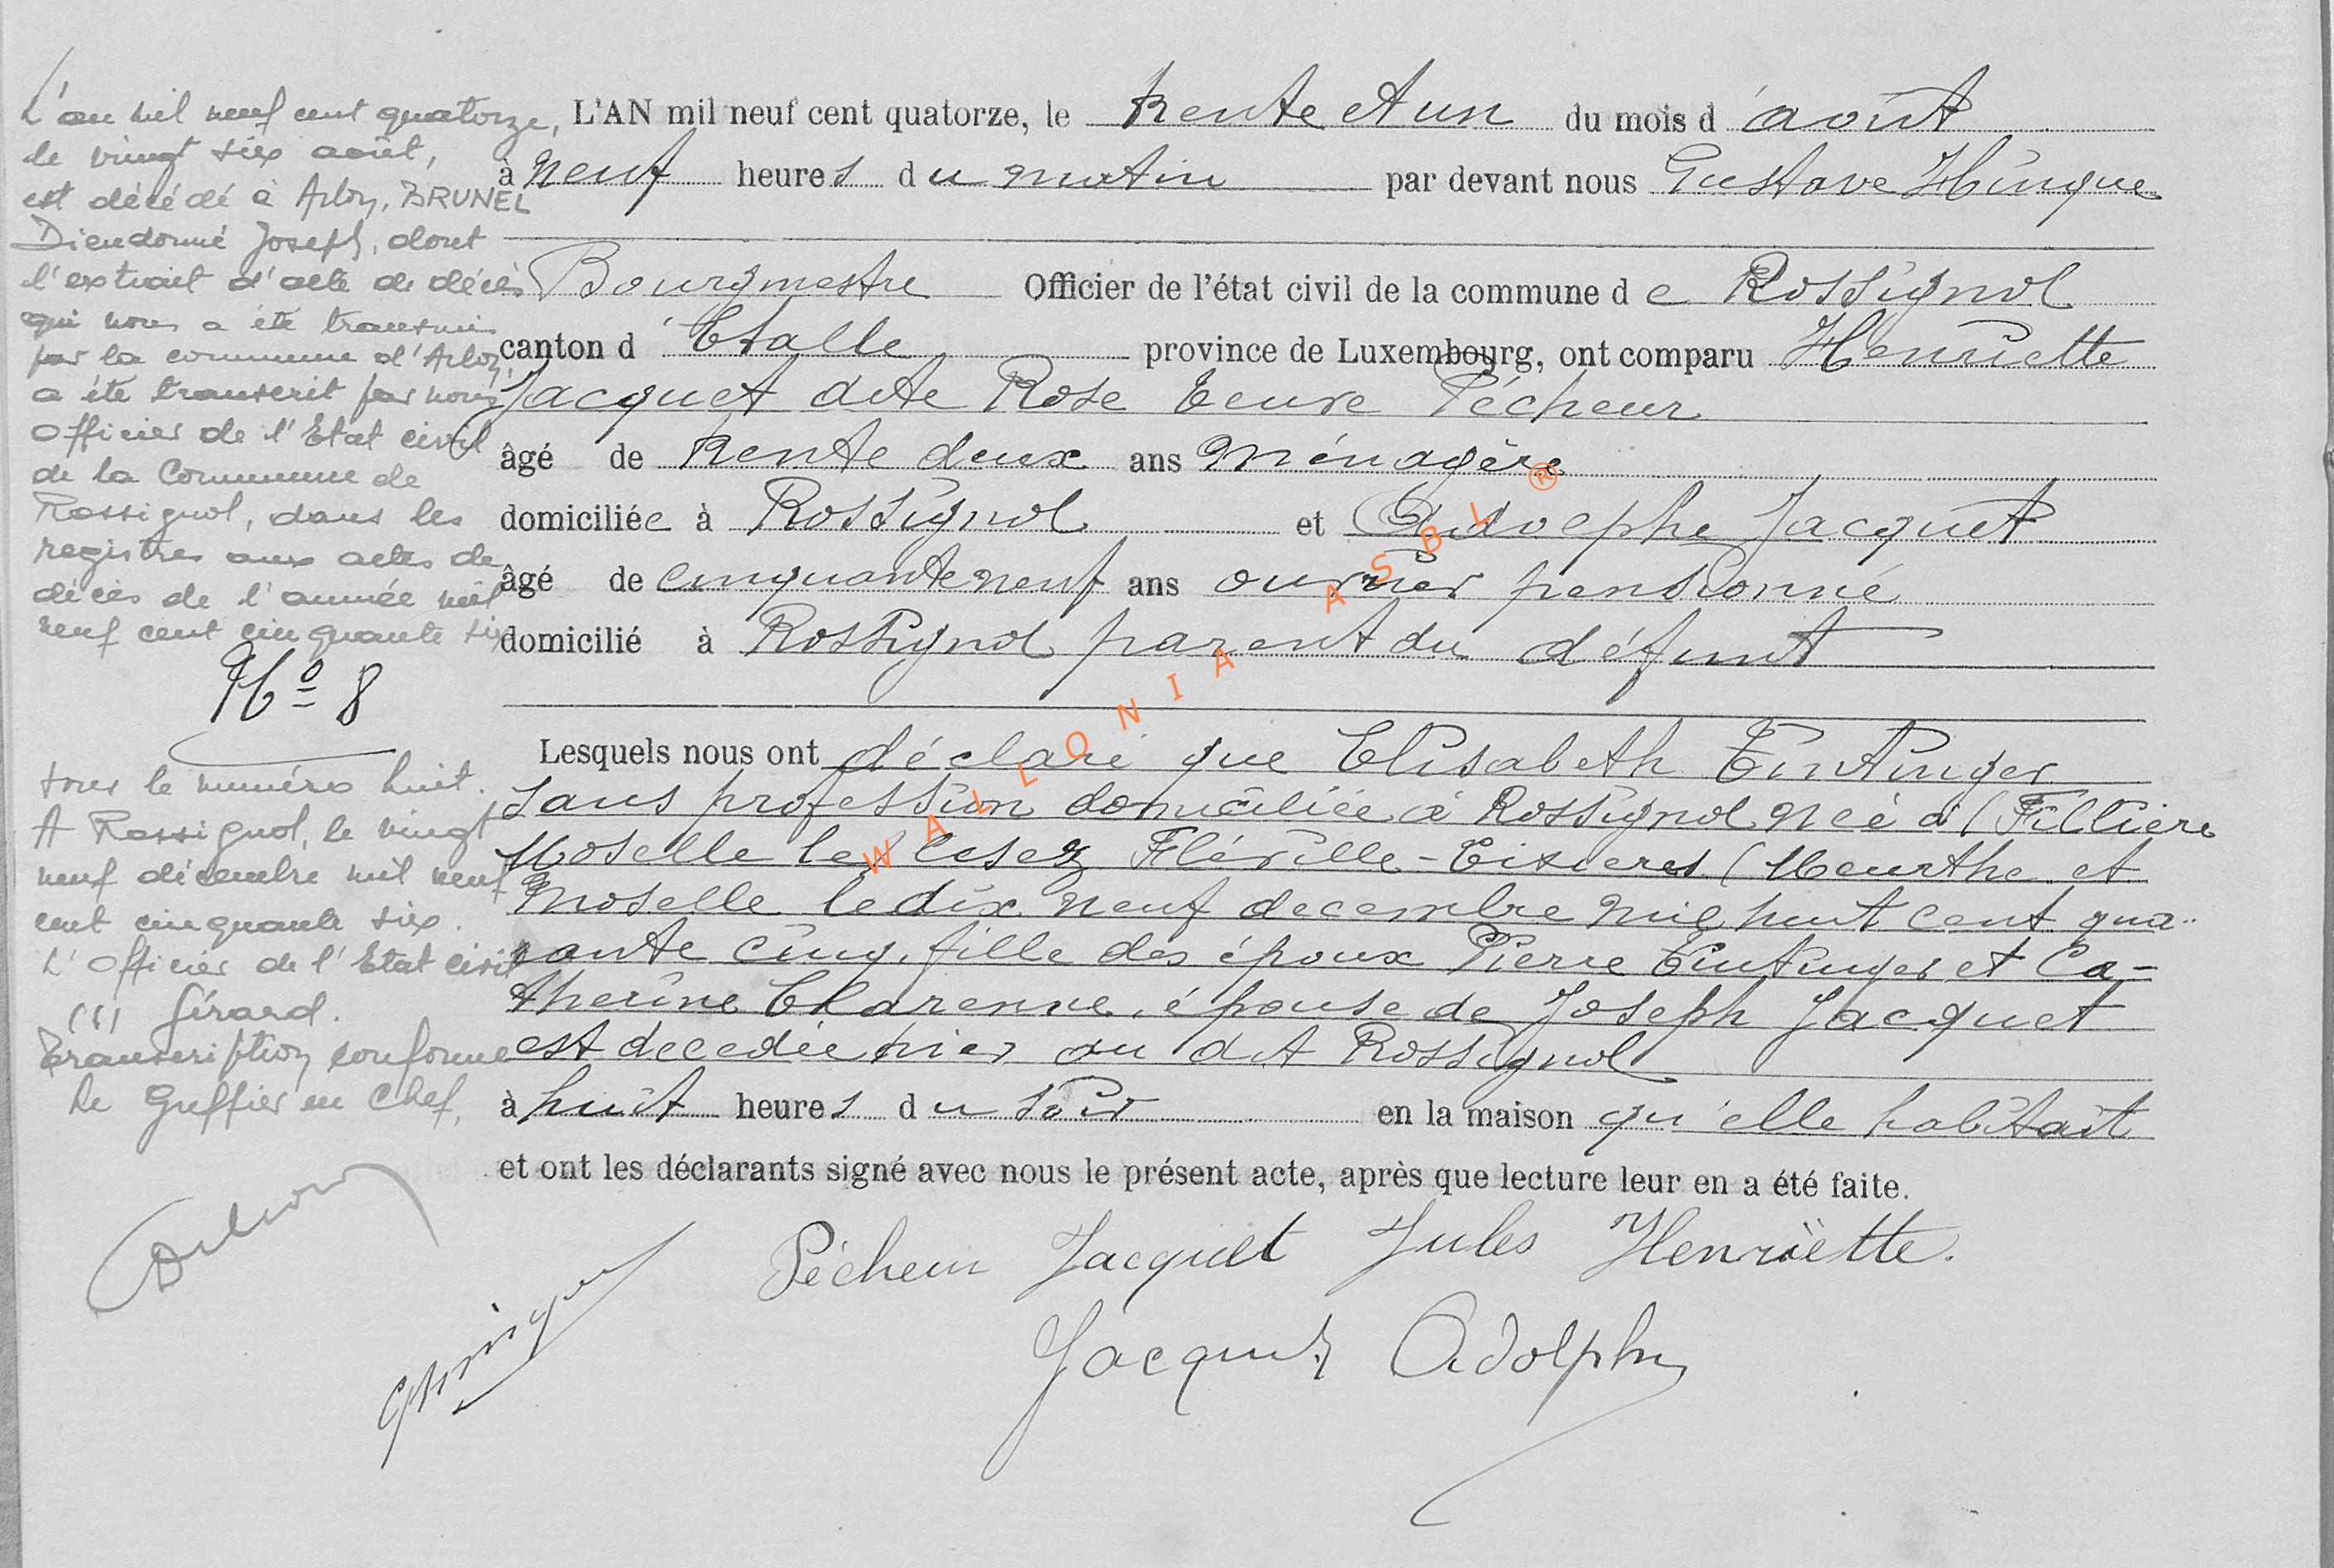 L'an mil neuf cent quatorze,
le vingt six août,
est décédé à Arlon, BRUNEL
Dieudonné Joseph, dont
l'extrait d'acte de décès
qui nous a été transmis
par la commune d'Arlon,
a été transcrit par nous
Officier de l'Etat civil
de la Commune de
Rossignol, dans les
registres aux actes de
décès de l'année mil
neuf cent cinquante six
No 8
sous le numéro huit.
A Rossignol, le vingt
neuf décembre mil neuf
cent cinquante six.
L'Officier de l'Etat civil
(s) Gérard.
Transcription conforme
Le Greffier en Chef,
L'AN mil neuf cent quatorze, le trente et un du mois d'août
à neuf heures du matin par devant nous Gustave Hurique
Bourgmestre Officier de l'état civil de la commune de Rossignol
canton d'Etalle province de Luxembourg, ont comparu Henriette
Jacquet dite Rose veuve Pécheur
âgé de trente deux ans ménagère
domiciliée à Rossignol et Adolphe Jacquet
âgé de cinquante neuf ans ouvrier pensionné
domicilié à Rossignol parent du défunt
Lesquels nous ont déclaré que Elisabeth Tintinger
sans profession domiciliée à Rossignol née à (Fillière
Moselle lex lisez Fléville-Lixieres (Meurthe et
Moselle le dix neuf decembre mil huit cent qua-
rante cinq, fille des époux Pierre Tintinger et Ca-
therine Clarenne, épouse de Joseph Jacquet
est decedée hier au dit Rossignol
à huit heures du soir en la maison qu'elle habitait
et ont les déclarants signé avec nous le présent acte, après que lecture leur en a été faite.
Pécheur Jacquet Jules Henriëtte.
Jacquet Adolphe
WALLONIA ASBL ®